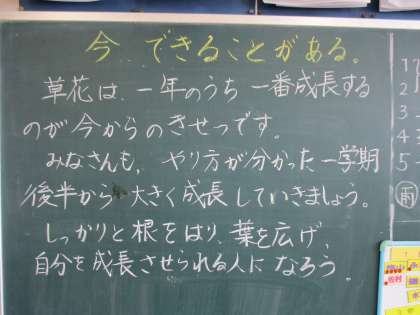 今、できることがある。
草花は、一年のうち一番成長する
のが今からのきせつです。
みなさんも、やり方が分かった一学期
後半から大きく成長していきましょう。
しっかりと根をはり、葉を広げ、
自分を成長させられる人になろう。
1
2
3
4
5
雨